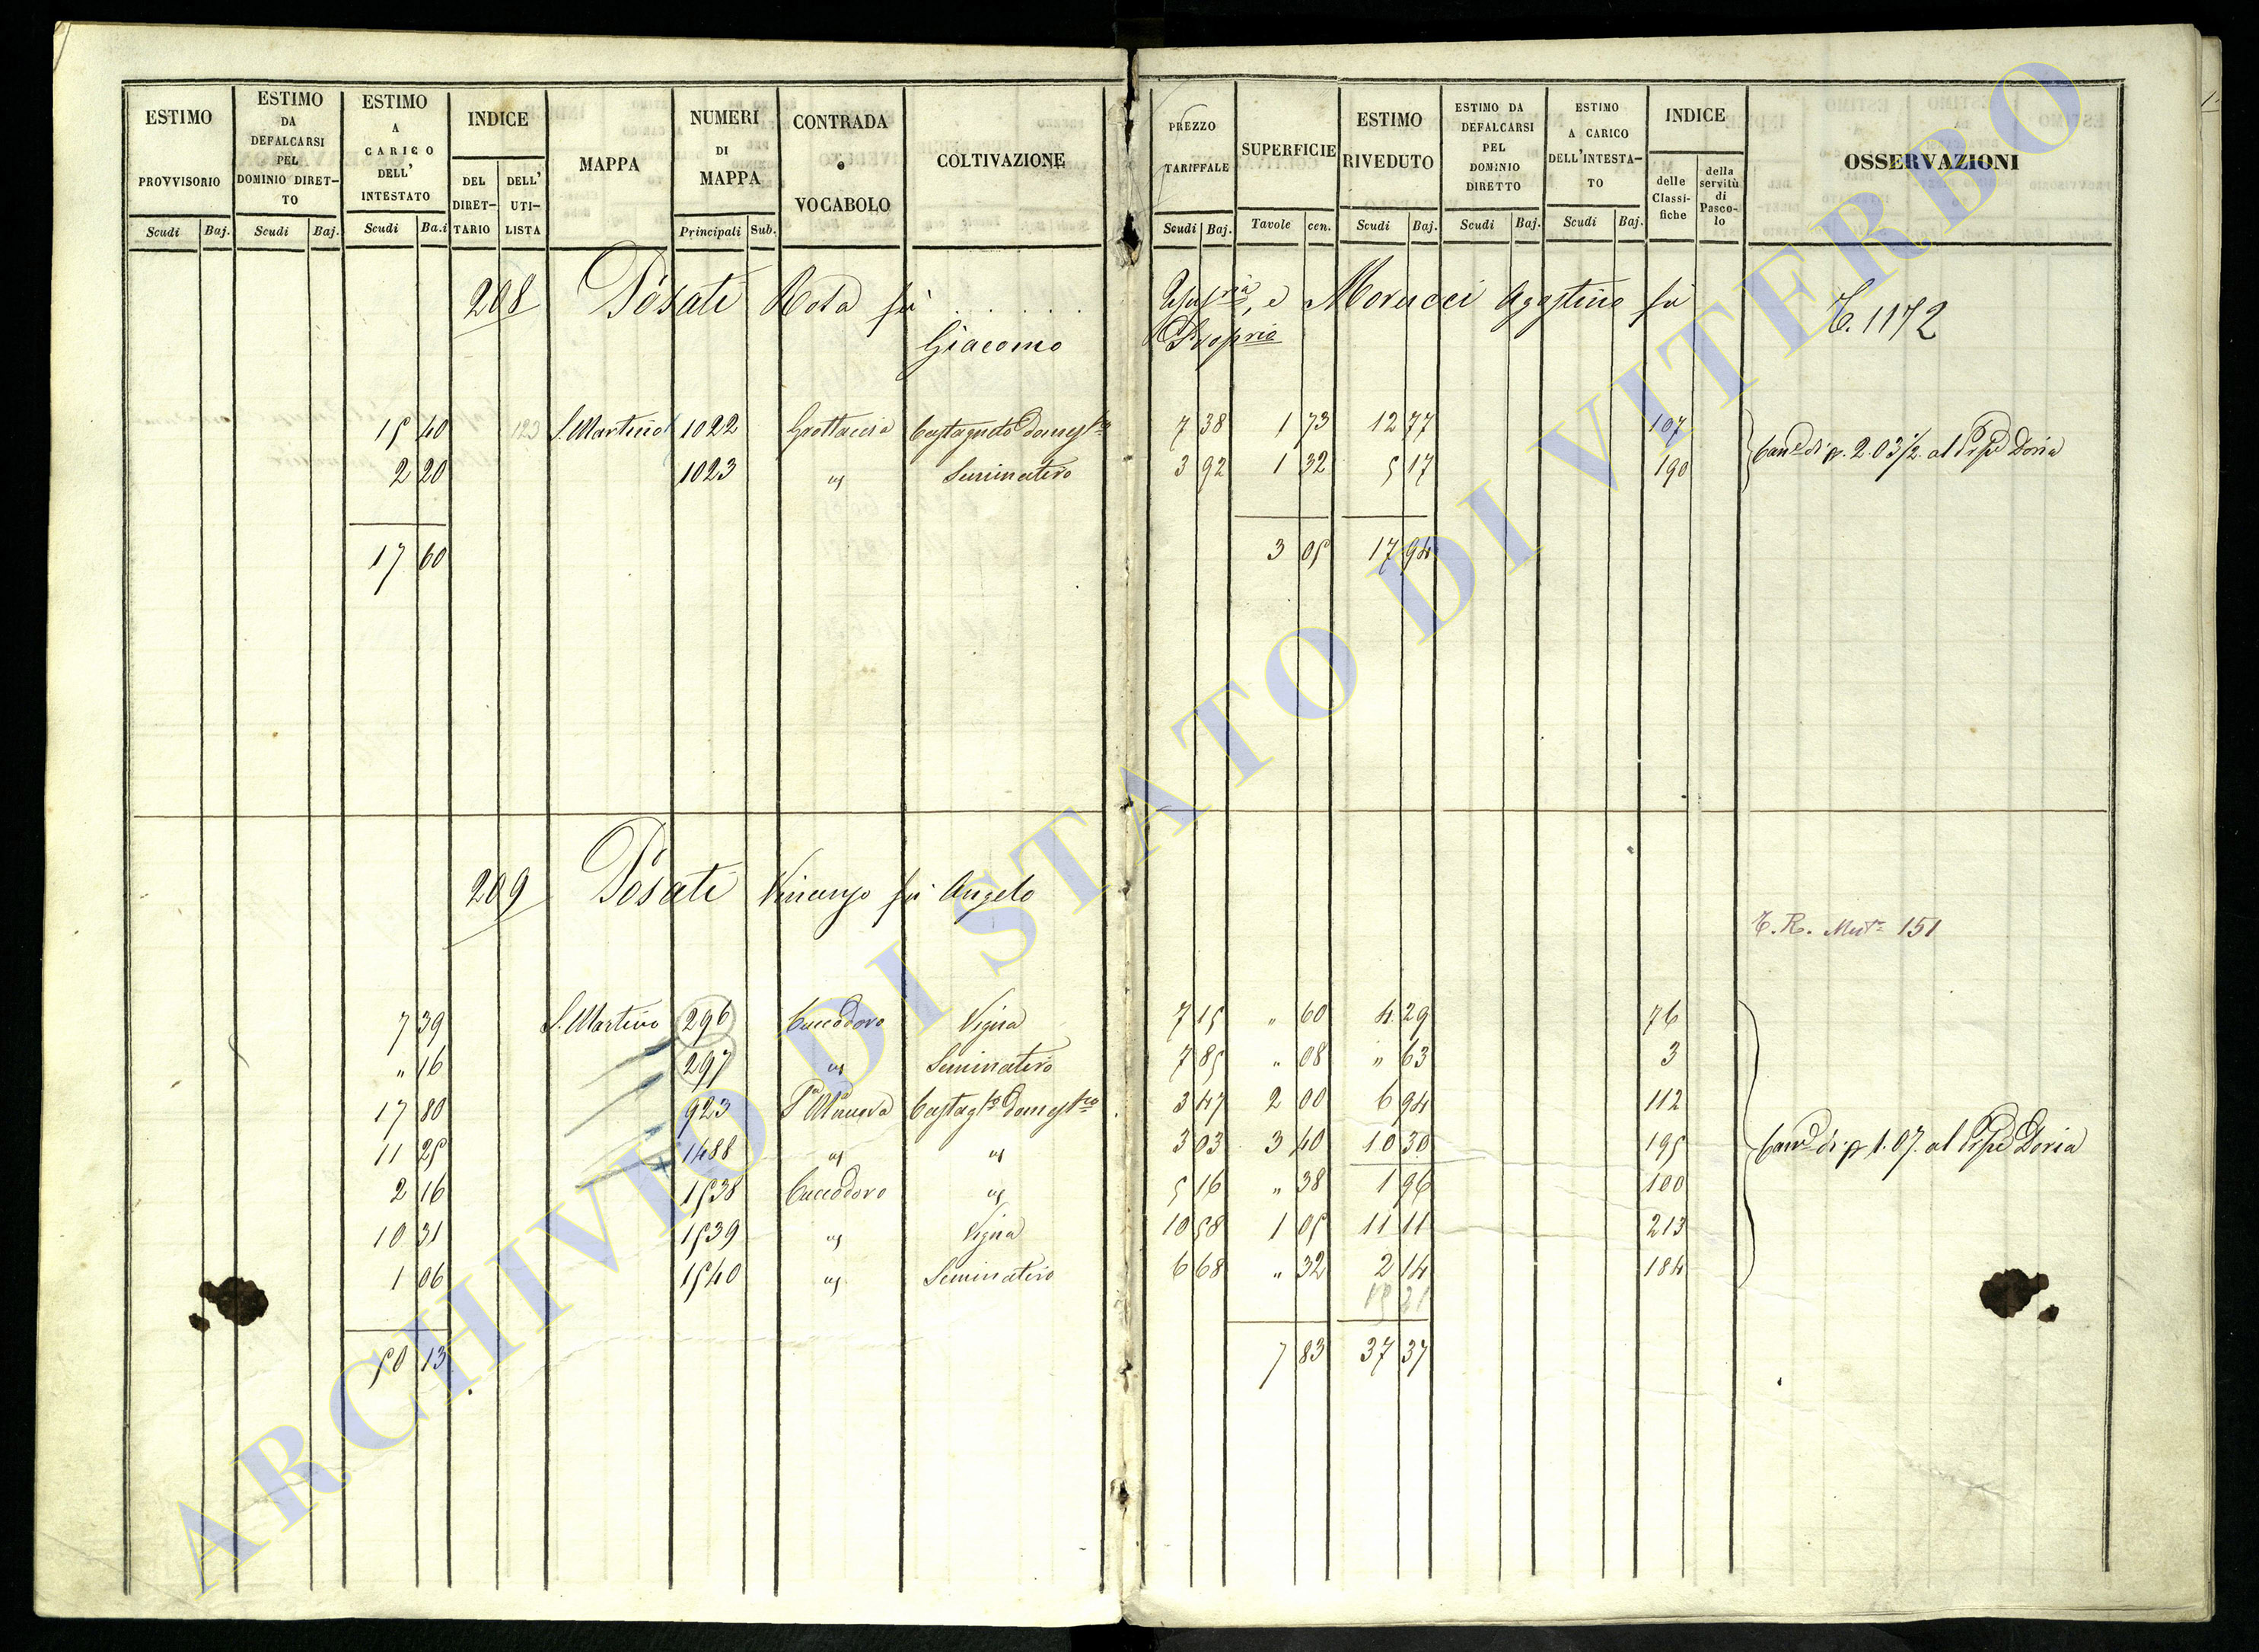 ESTIMO PROVVISORIO
Scudi Baj.
ESTIMO DA DEFALCARSI PEL DOMINIO DIRET-TO
Scudi Baj.
ESTIMO A CARICO DELL' INTESTATO
Scudi Ba.i
INDICE
DEL DIRET-TARIO
DELL' UTI-LISTA
MAPPA
NUMERI DI MAPPA
Principali Sub.
CONTRADA o VOCABOLO
COLTIVAZIONE
PREZZO TARIFFALE
Scudi Baj.
SUPERFICIE
Tavole cen.
ESTIMO RIVEDUTO
Scudi Baj.
ESTIMO DA DEFALCARSI PEL DOMINIO DIRETTO
Scudi Baj.
ESTIMO A CARICO DELL'INTESTA-TO
Scudi Baj.
INDICE
delle Classi-fiche
della servitù di Pasco-lo
OSSERVAZIONI
208 Posati Rosa fu . . . . . . Usufria, e Morucci Agostino fu
Giacomo Propria
T. 1172
15 40 123 S. Martino 1022 Grottaccia Castagneto Domesto 7 38 1 73 12 77 107
2 20 1023 " Seminativo 3 92 1 32 5 17 190
Cane di p. 2.03 1/2. al Pipe Doria
17 60 3 05 17 94
209 Posati Vincenzo fu Angelo
T. R. Mut= 151
7 39 S. Martino 296 Cuccodoro Vigna 7 15 " 60 4 29 76
" 16 297 " Seminativo 7 85 " 08 " 63 3
17 80 923 Castagto Domestco 3 47 2 00 6 94 112
11 25 1488 " " 3 03 3 40 10 30 195
Cane di p 1.07. al Pipe Doria
2 16 1538 Cuccodoro " 5 16 " 38 1 96 100
10 31 1539 " Vigna 10 58 1 05 11 11 213
1 06 1540 " Seminativo 6 68 " 32 2 14 184
50 13 7 83 37 37
ARCHIVIO DI STATO DI VITERBO